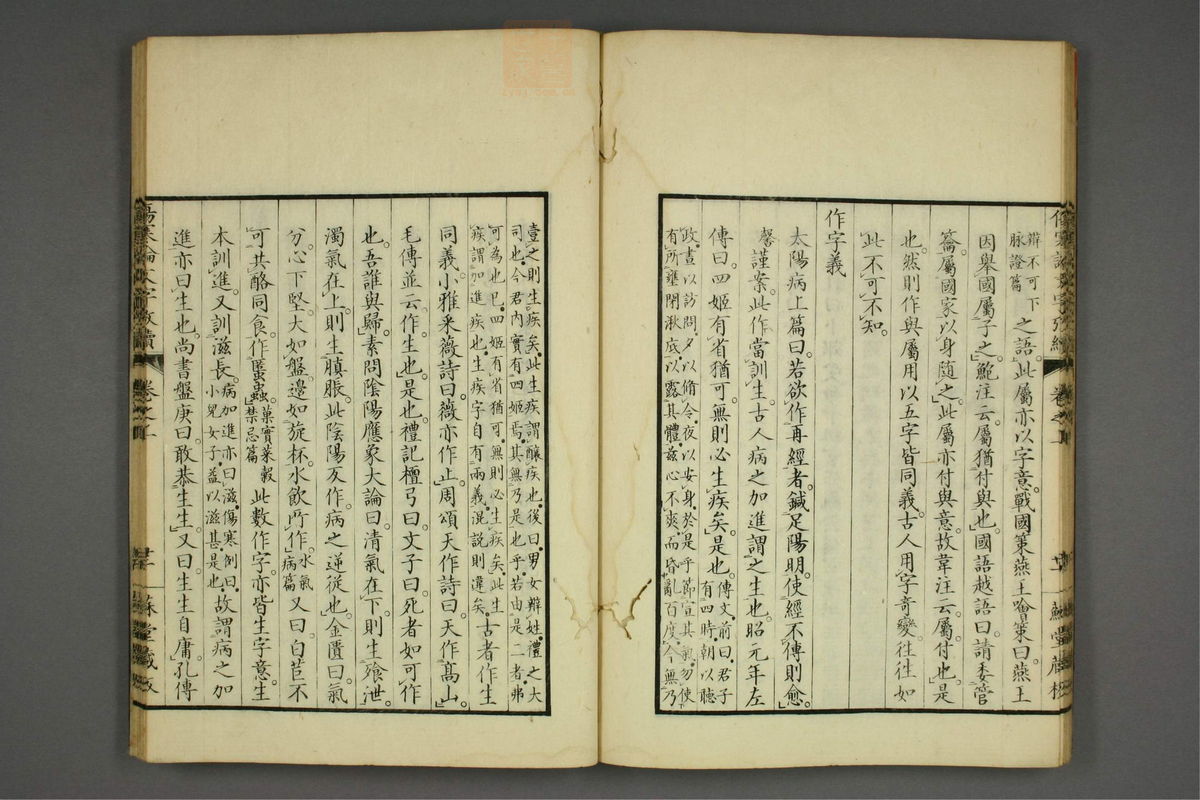 辨不可下
脉證篇
之語此屬亦以字意戰國策燕王噲策曰燕王
因舉國屬子之鮑注云屬猶付與也國語越語曰請委管
籥屬國家以身隨之此屬亦付與意故韋注云屬付也是
也然則作與屬用以五字皆同義古人用字奇變往往如
此不可不知
作字義
太陽病上篇曰若欲作再經者鍼足陽明使經不傳則愈
馨謹案此作當訓生古人病之加進謂之生也昭元年左
傳曰四姬有省猶可無則必生疾矣是也
傳文前曰君子
有四時朝以聽
政晝以訪問夕以脩令夜以安身於是乎節宣其氣勿使
有所壅閉湫底以露其體茲心不爽而昏亂百度今無乃
壹之則生疾矣此生疾謂釀疾也後曰男女辨姓禮之大
司也今君內實有四姬焉其無乃是也乎若由是二者弗
可為也已四姬有省猶可無則必生疾矣此生
疾謂加進疾也生疾字自有兩義混說則違矣
古者作生
同義小雅采薇詩曰薇亦作止周頌天作詩曰天作高山
毛傳並云作生也是也禮記檀弓曰文子曰死者如可作
也吾誰與歸素問陰陽應象大論曰清氣在下則生飧泄
濁氣在上則生䐜脹此陰陽反作病之逆從也金匱曰氣
分心下堅大如盤邊如旋杯水飲所作
水氣
病篇
又曰白苣不
可共酪同食作䘌蟲
菓實菜穀
禁忌篇
此數作字亦皆生字意生
本訓進又訓滋長
病加進亦曰滋傷寒例曰
小兒女子益以滋甚是也
故謂病之加
進亦曰生也尚書盤庚曰敢恭生生又曰生生自庸孔傳